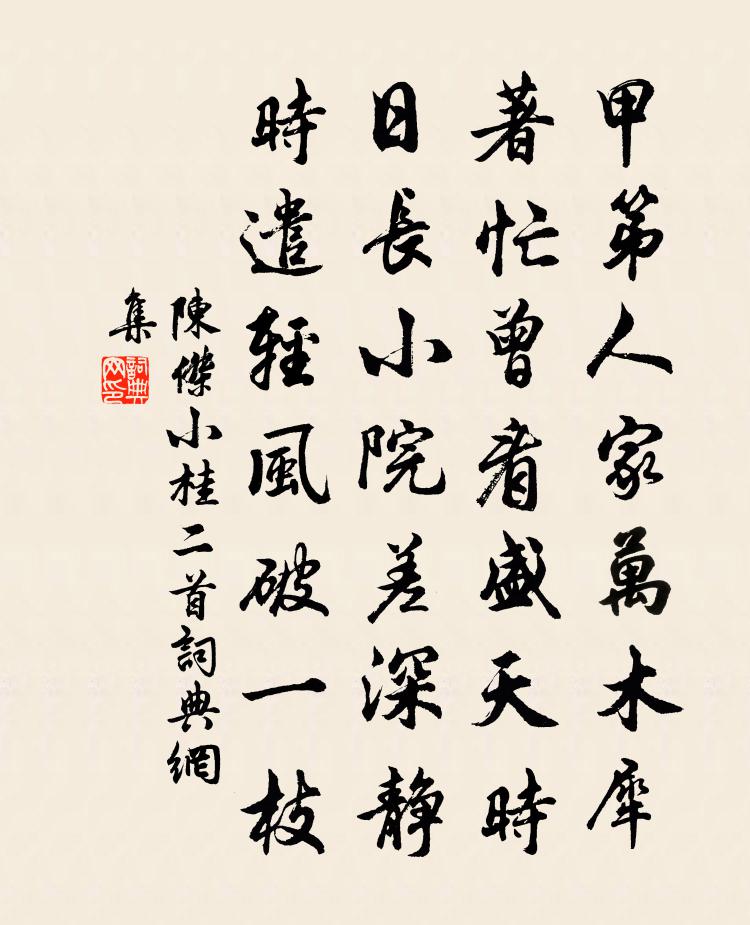 甲第人家萬木犀
著忙曾看盛天時
日長小院差深靜
時遣輕風破一枝
陳傑小桂二首詞典網
集
詞典網印